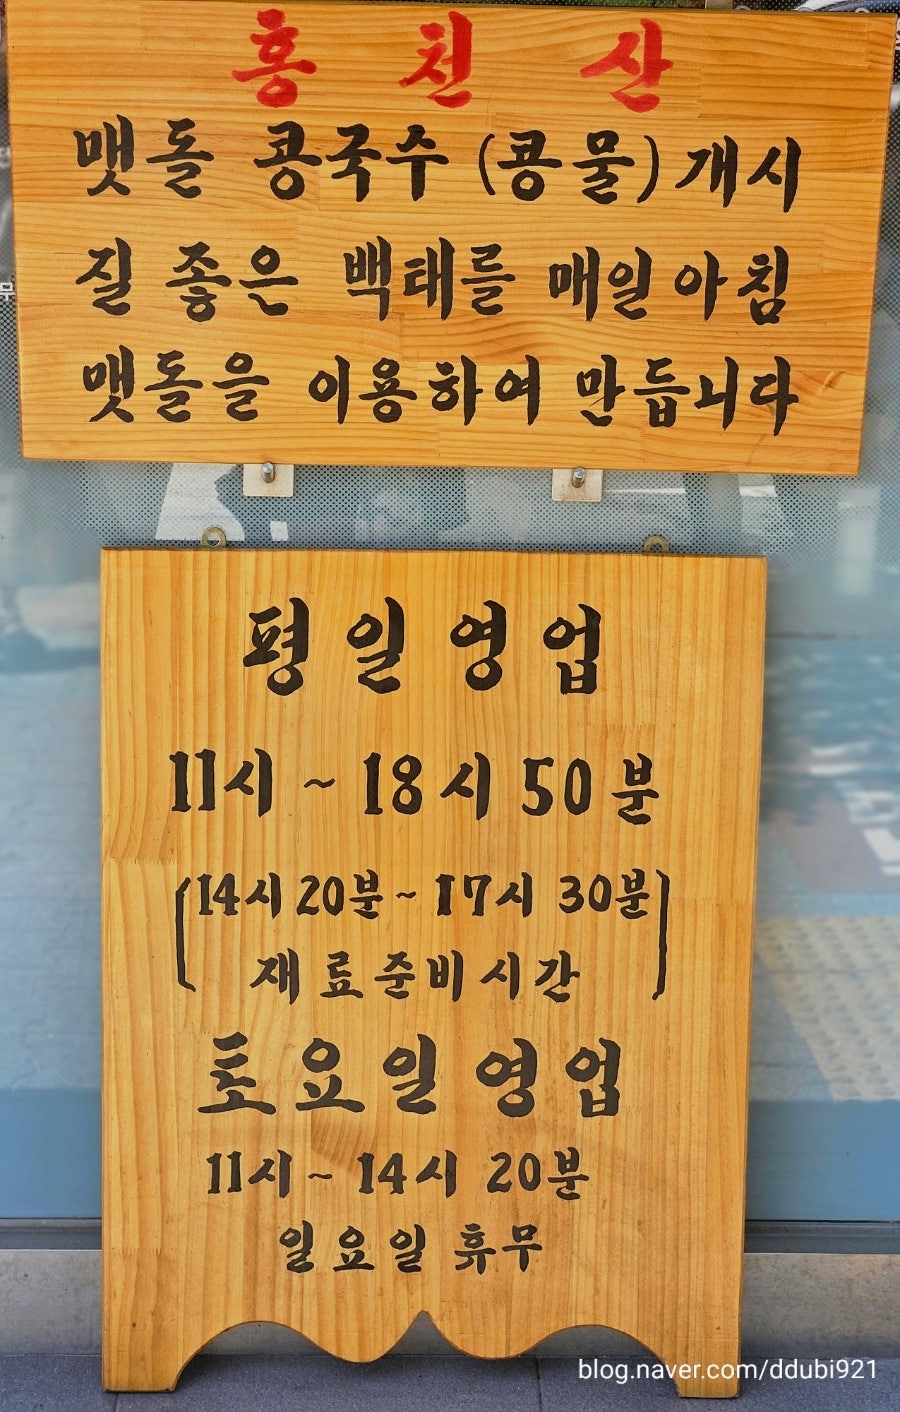 홍천산
맷돌 콩국수 (콩물) 개시
질 좋은 백태를 매일 아침
맷돌을 이용하여 만듭니다
평일영업
11시 ~ 18시 50분
(14시 20분 ~ 17시 30분
재료준비시간)
토요일영업
11시 ~ 14시 20분
일요일 휴무
blog.naver.com/ddubi921